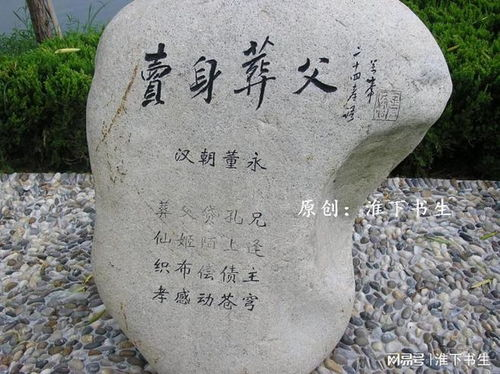 賣身葬父
二十四孝
汉朝董永
葬父贷孔兄
仙姬陌上逢
织布偿债主
孝感动苍穹
原创：淮下书生
网易号 | 淮下书生